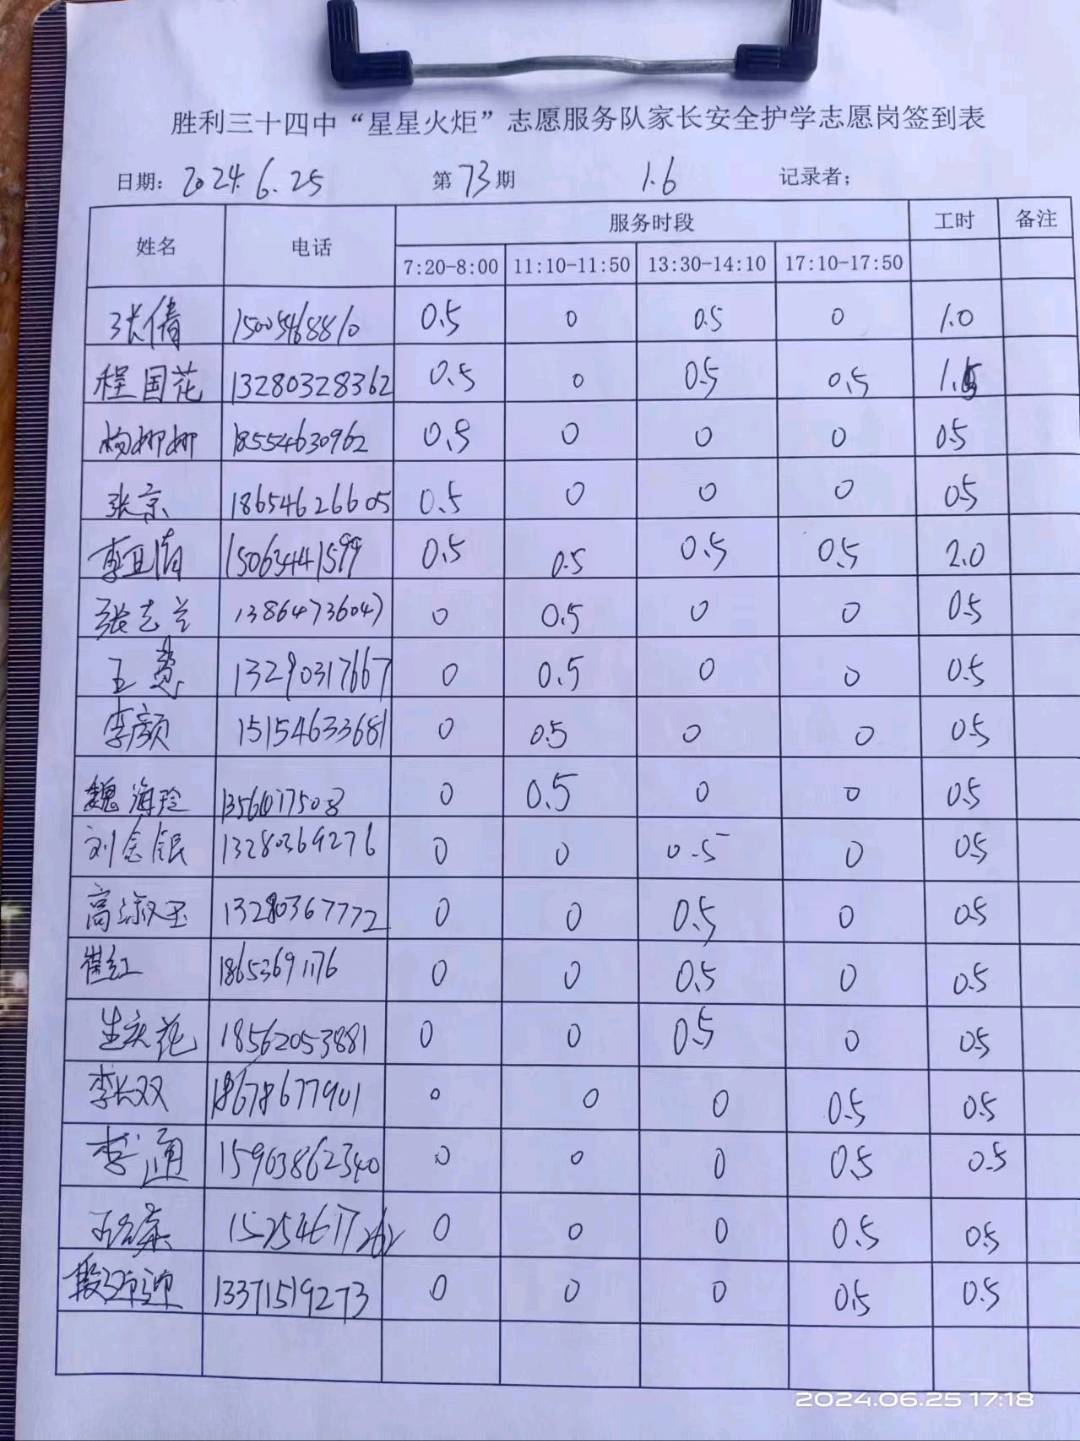 胜利三十四中“星星火炬”志愿服务队家长安全护学志愿岗签到表
日期: 2024.6.25 第73期 1.6 记录者;
姓名 电话 服务时段 工时 备注
7:20-8:00 11:10-11:50 13:30-14:10 17:10-17:50
张倩 15005468810 0.5 0 0.5 0 1.0
程国花 13280328362 0.5 0 0.5 0.5 1.5
杨娜娜 18554630962 0.5 0 0 0 0.5
张京 18654626605 0.5 0 0 0 0.5
李亚倩 15063441599 0.5 0.5 0.5 0.5 2.0
张志兰 13864736047 0 0.5 0 0 0.5
王慧 13290317667 0 0.5 0 0 0.5
李颜 15154633681 0 0.5 0 0 0.5
魏海玲 0 0.5 0 0 0.5
刘金银 13280369276 0 0 0.5 0 0.5
高淑玉 13280367772 0 0 0.5 0 0.5
崔红 18653691176 0 0 0.5 0 0.5
生庆花 18562053881 0 0 0.5 0 0.5
李长双 18678677901 0 0 0 0.5 0.5
李通 15963862340 0 0 0 0.5 0.5
15254617262 0 0 0 0.5 0.5
13371519273 0 0 0 0.5 0.5
2024.06.25 17:18